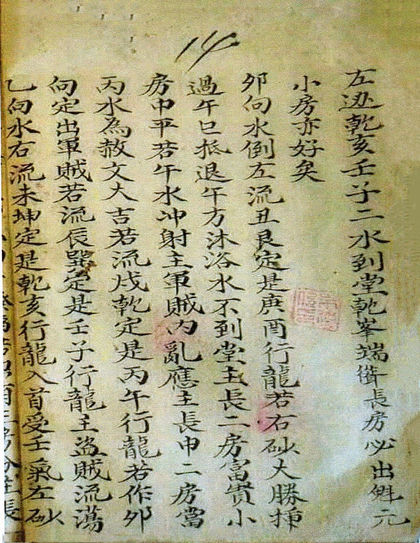 14
左迊乾亥壬子二水到堂乾峯端偹長房必出解元
小房亦好矣
卯向水倒左流丑艮定是庚酉行龍若右砂大勝揷
過午巳抵退午方沐浴水不到堂主長二房富貴小
房中平若午水冲射主軍賊内亂應主長中二房當
丙水為赦文大吉若流戌乾定是丙午行龍若作卯
向定出軍賊若流辰巽定是壬子行龍主盗賊流蕩
乙向水右流未坤定是乾亥行龍入首受壬氣左砂